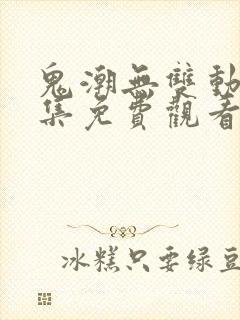 鬼潮無雙動
集免費觀看
冰糕只要绿豆